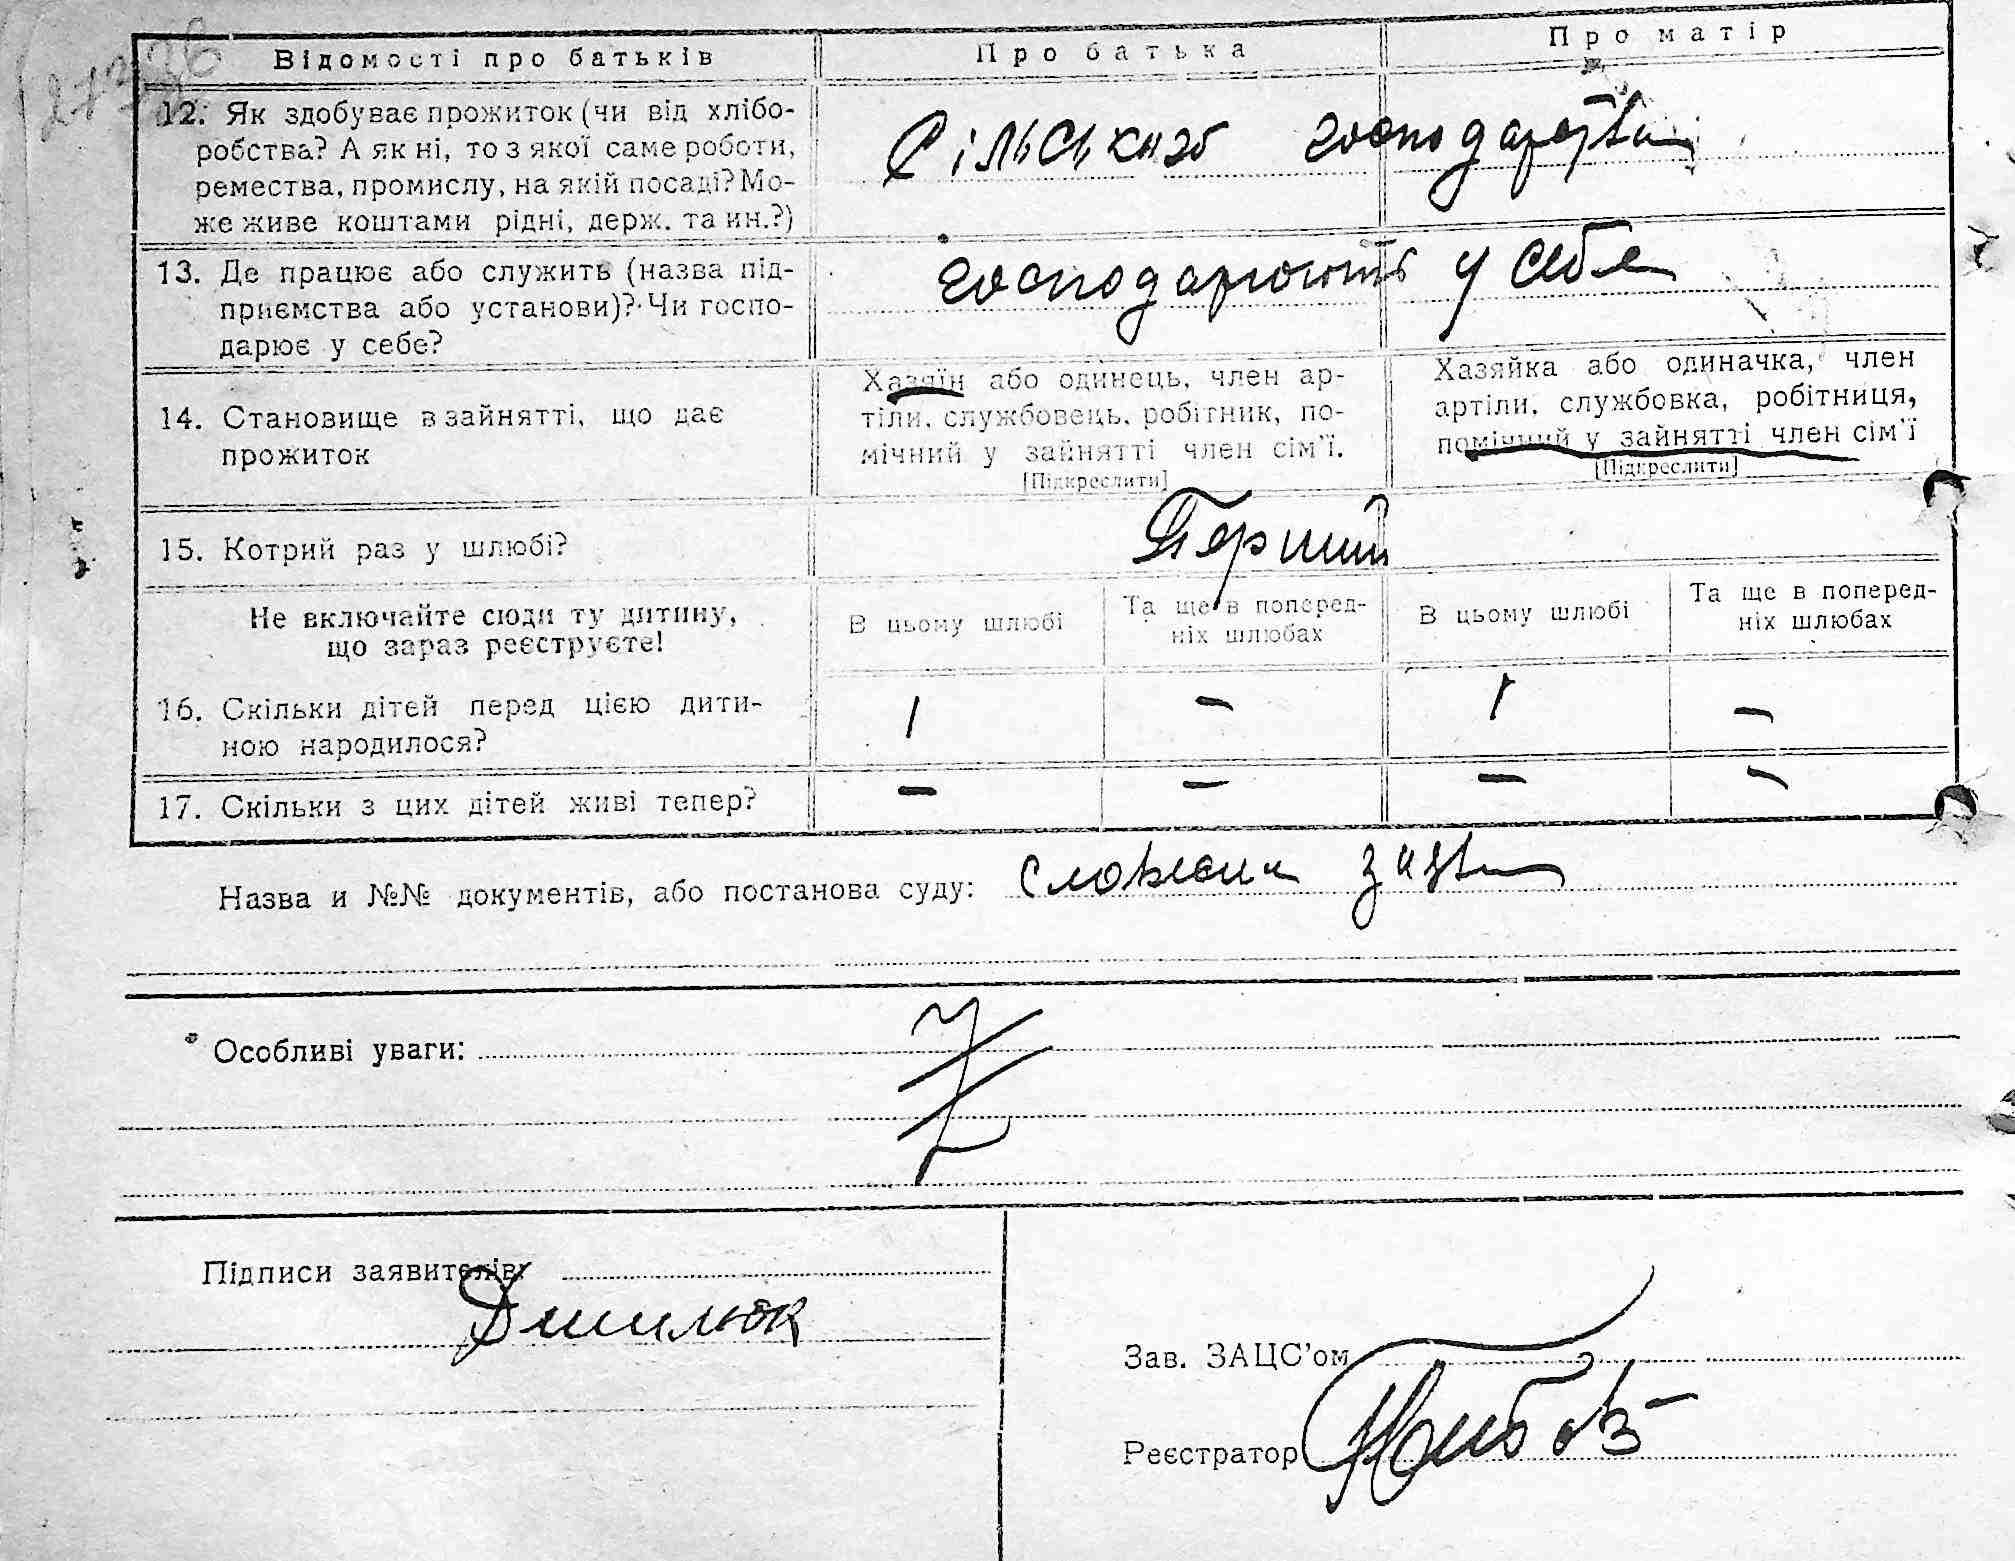 Відомості про батьків
Про батька
Про матір
12. Як здобуває прожиток (чи від хлібо-
робства? А як ні, то з якої саме роботи,
ремества, промислу, на якій посаді? Мо-
же живе коштами рідні, держ. та ин.?)
Сільського господарства
13. Де працює або служить (назва під-
приємства або установи)? Чи госпо-
дарює у себе?
господарюють у себе
14. Становище в зайнятті, що дає
прожиток
Хазяїн або одинець, член ар-
тіли, службовець, робітник, по-
мічний у зайнятті член сім'ї.
[Підкреслити]
Хазяйка або одиначка, член
артіли, службовка, робітниця,
помічний у зайнятті член сім'ї
[Підкреслити]
15. Котрий раз у шлюбі?
Перший
Не включайте сюди ту дитину,
що зараз реєструєте!
В цьому шлюбі
Та ще в поперед-
ніх шлюбах
В цьому шлюбі
Та ще в поперед-
ніх шлюбах
16. Скільки дітей перед цією дити-
ною народилося?
1 – 1 –
17. Скільки з цих дітей живі тепер?
– – – –
Назва и №№ документів, або постанова суду: словесна заява
Особливі уваги:
Підписи заявителів:
Зав. ЗАЦС'ом
Реєстратор